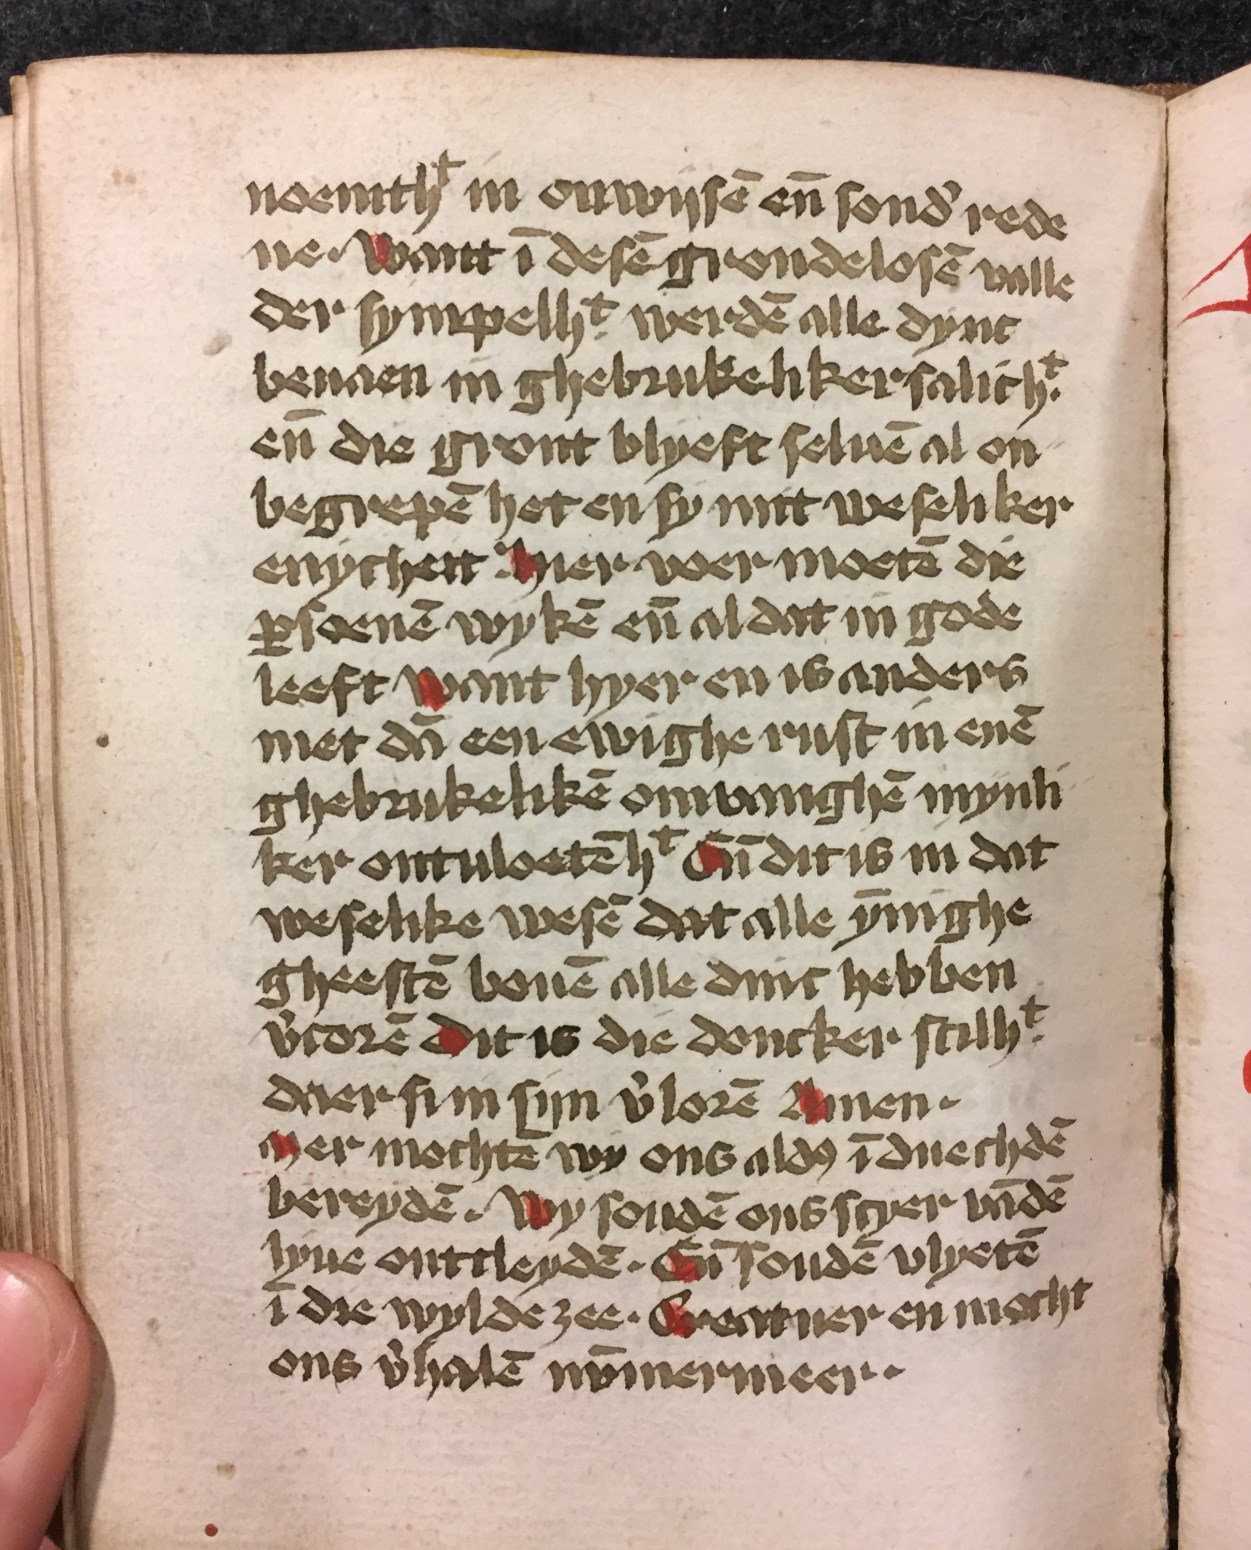 noemthᵗ in onwijsē en̄ sond' rede
ne. Want ī desē grondelosē valle
der sympelhᵗ. werdē alle dync
beuaen in ghebrukeliker salichᵗ.
en̄ die gront blyeft seluē al on
begrepē het en sy mit weseliker
enycheit. Hier voer moetē die
ꝑsoenē wykē en̄ al dat in gode
leeft want hyer en is anders
niet dā een ewighe rust in enē
ghebrukelikē omvanghē mynli
ker ontuloetēhᵗ En̄ dit is in dat
weselike wesē dat alle ȳnighe
gheestē bouē alle dinc hebben
v'corē Dit is die doncker stilhᵗ.
daer si in sijn v'lorē Amen.
Mer mochtē wy ons aldꝰ ī duechdē
bereydē. Wy soudē ons scyer vādē
lyue ontcleydē. En̄ soudē vlyetē
ī die wylde zee. Creatuer en mocht
ons v'halē nv̄mermeer.